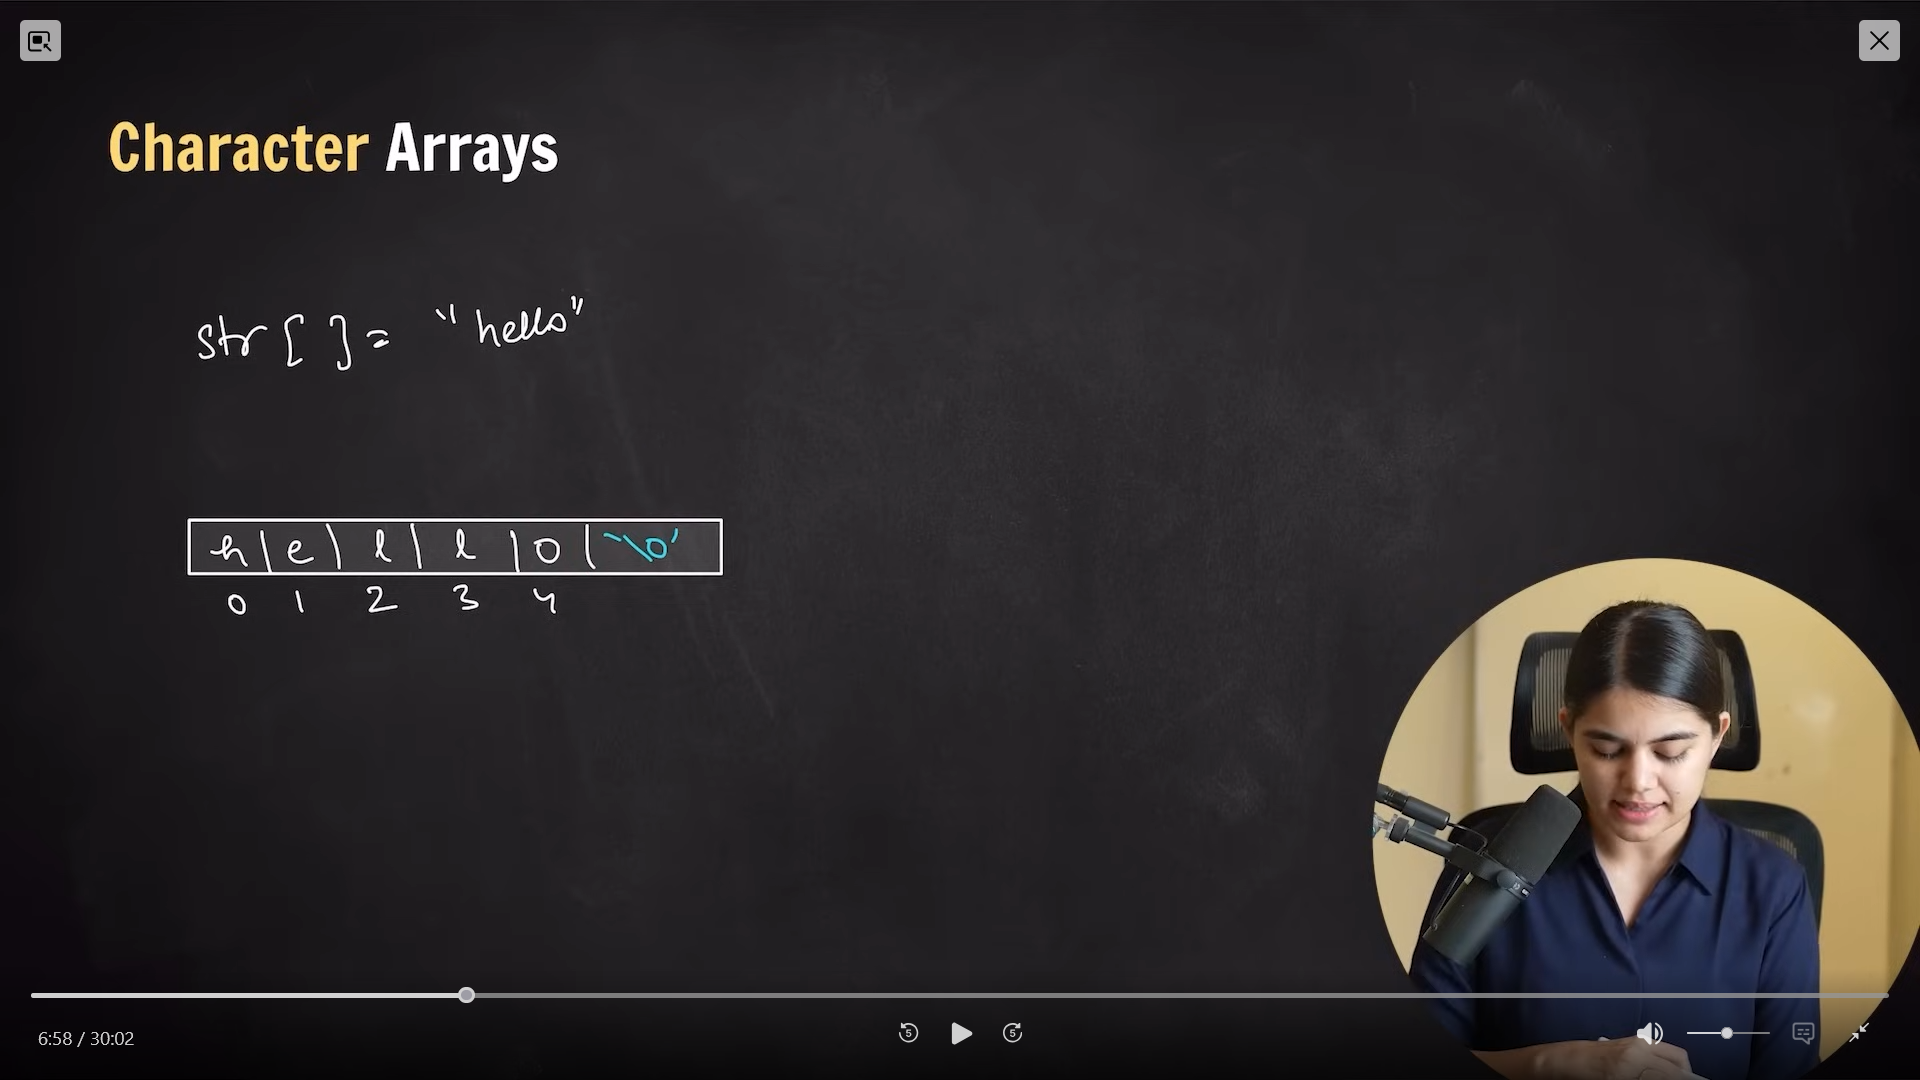 Character Arrays
str [ ] = "hello"
h | e | l | l | o | '\0'
0 1 2 3 4
6:58 / 30:02
5 5